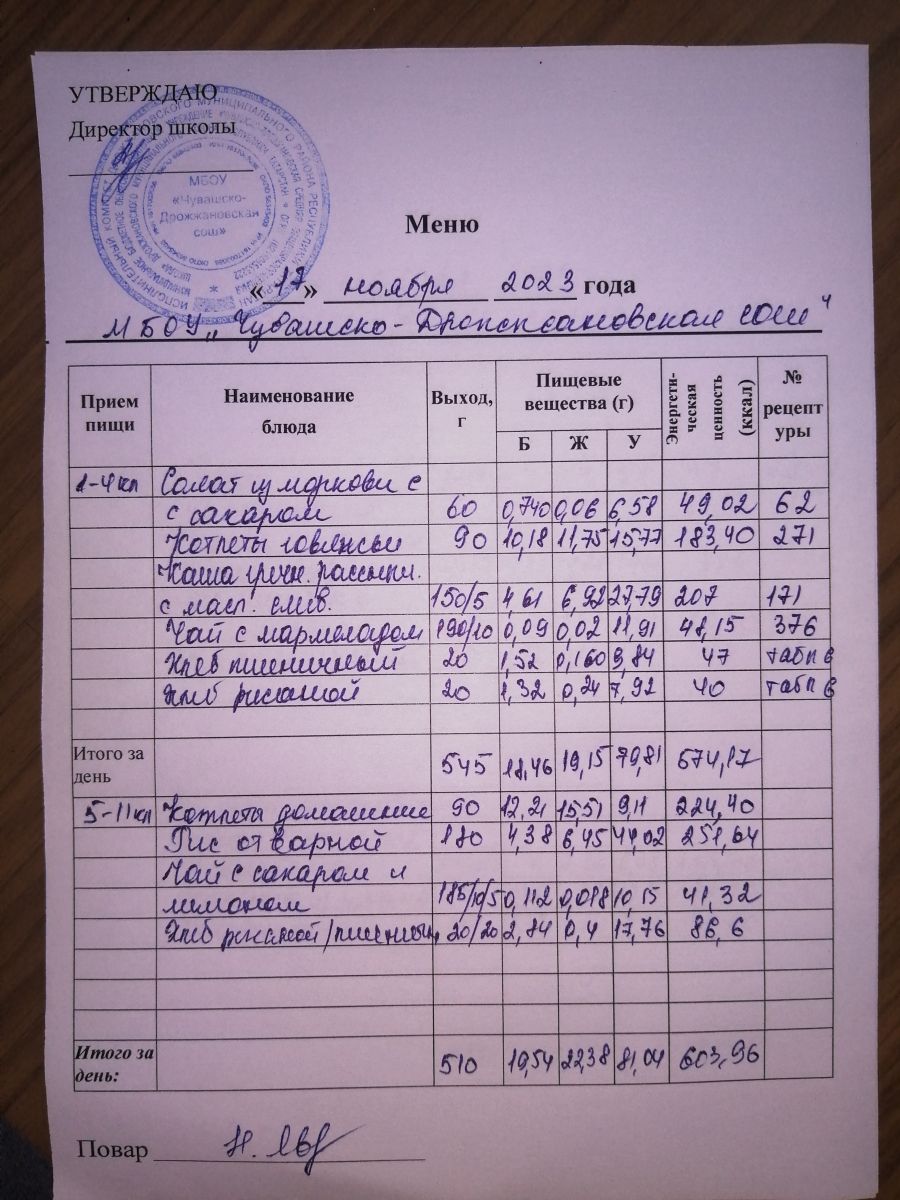 УТВЕРЖДАЮ
Директор школы
МБОУ
«Чувашско-
Дрожжановская
сош»
Меню
«17» ноября 2023 года
МБОУ „Чувашско-Дрожжановская сош"
Прием пищи Наименование блюда Выход, г Пищевые вещества (г) Б Ж У Энергетическая ценность (ккал) № рецептуры
1-4 кл Салат из моркови с
с сахаром 60 0,740 0,06 6,58 49,02 62
Котлеты говяжьи 90 10,18 11,75 15,77 183,40 271
Каша гречн. рассыпч.
с масл. слив. 150/5 4,61 6,92 27,79 207 171
Чай с мармеладом 190/10 0,09 0,02 11,91 48,15 376
Хлеб пшеничный 20 1,52 0,160 9,84 47 табл 6
Хлеб ржаной 20 1,32 0,24 7,92 40 табл 6
Итого за день 545 18,46 19,15 79,81 574,17
5-11 кл Котлеты домашние 90 12,21 15,51 9,11 224,40
Рис отварной 180 4,38 6,45 44,02 251,64
Чай с сахаром и
лимоном 185/10/5 0,112 0,018 10,15 41,32
Хлеб ржаной/пшеничн, 20/20 2,84 0,4 17,76 86,6
Итого за день: 510 19,54 22,38 81,04 603,96
Повар